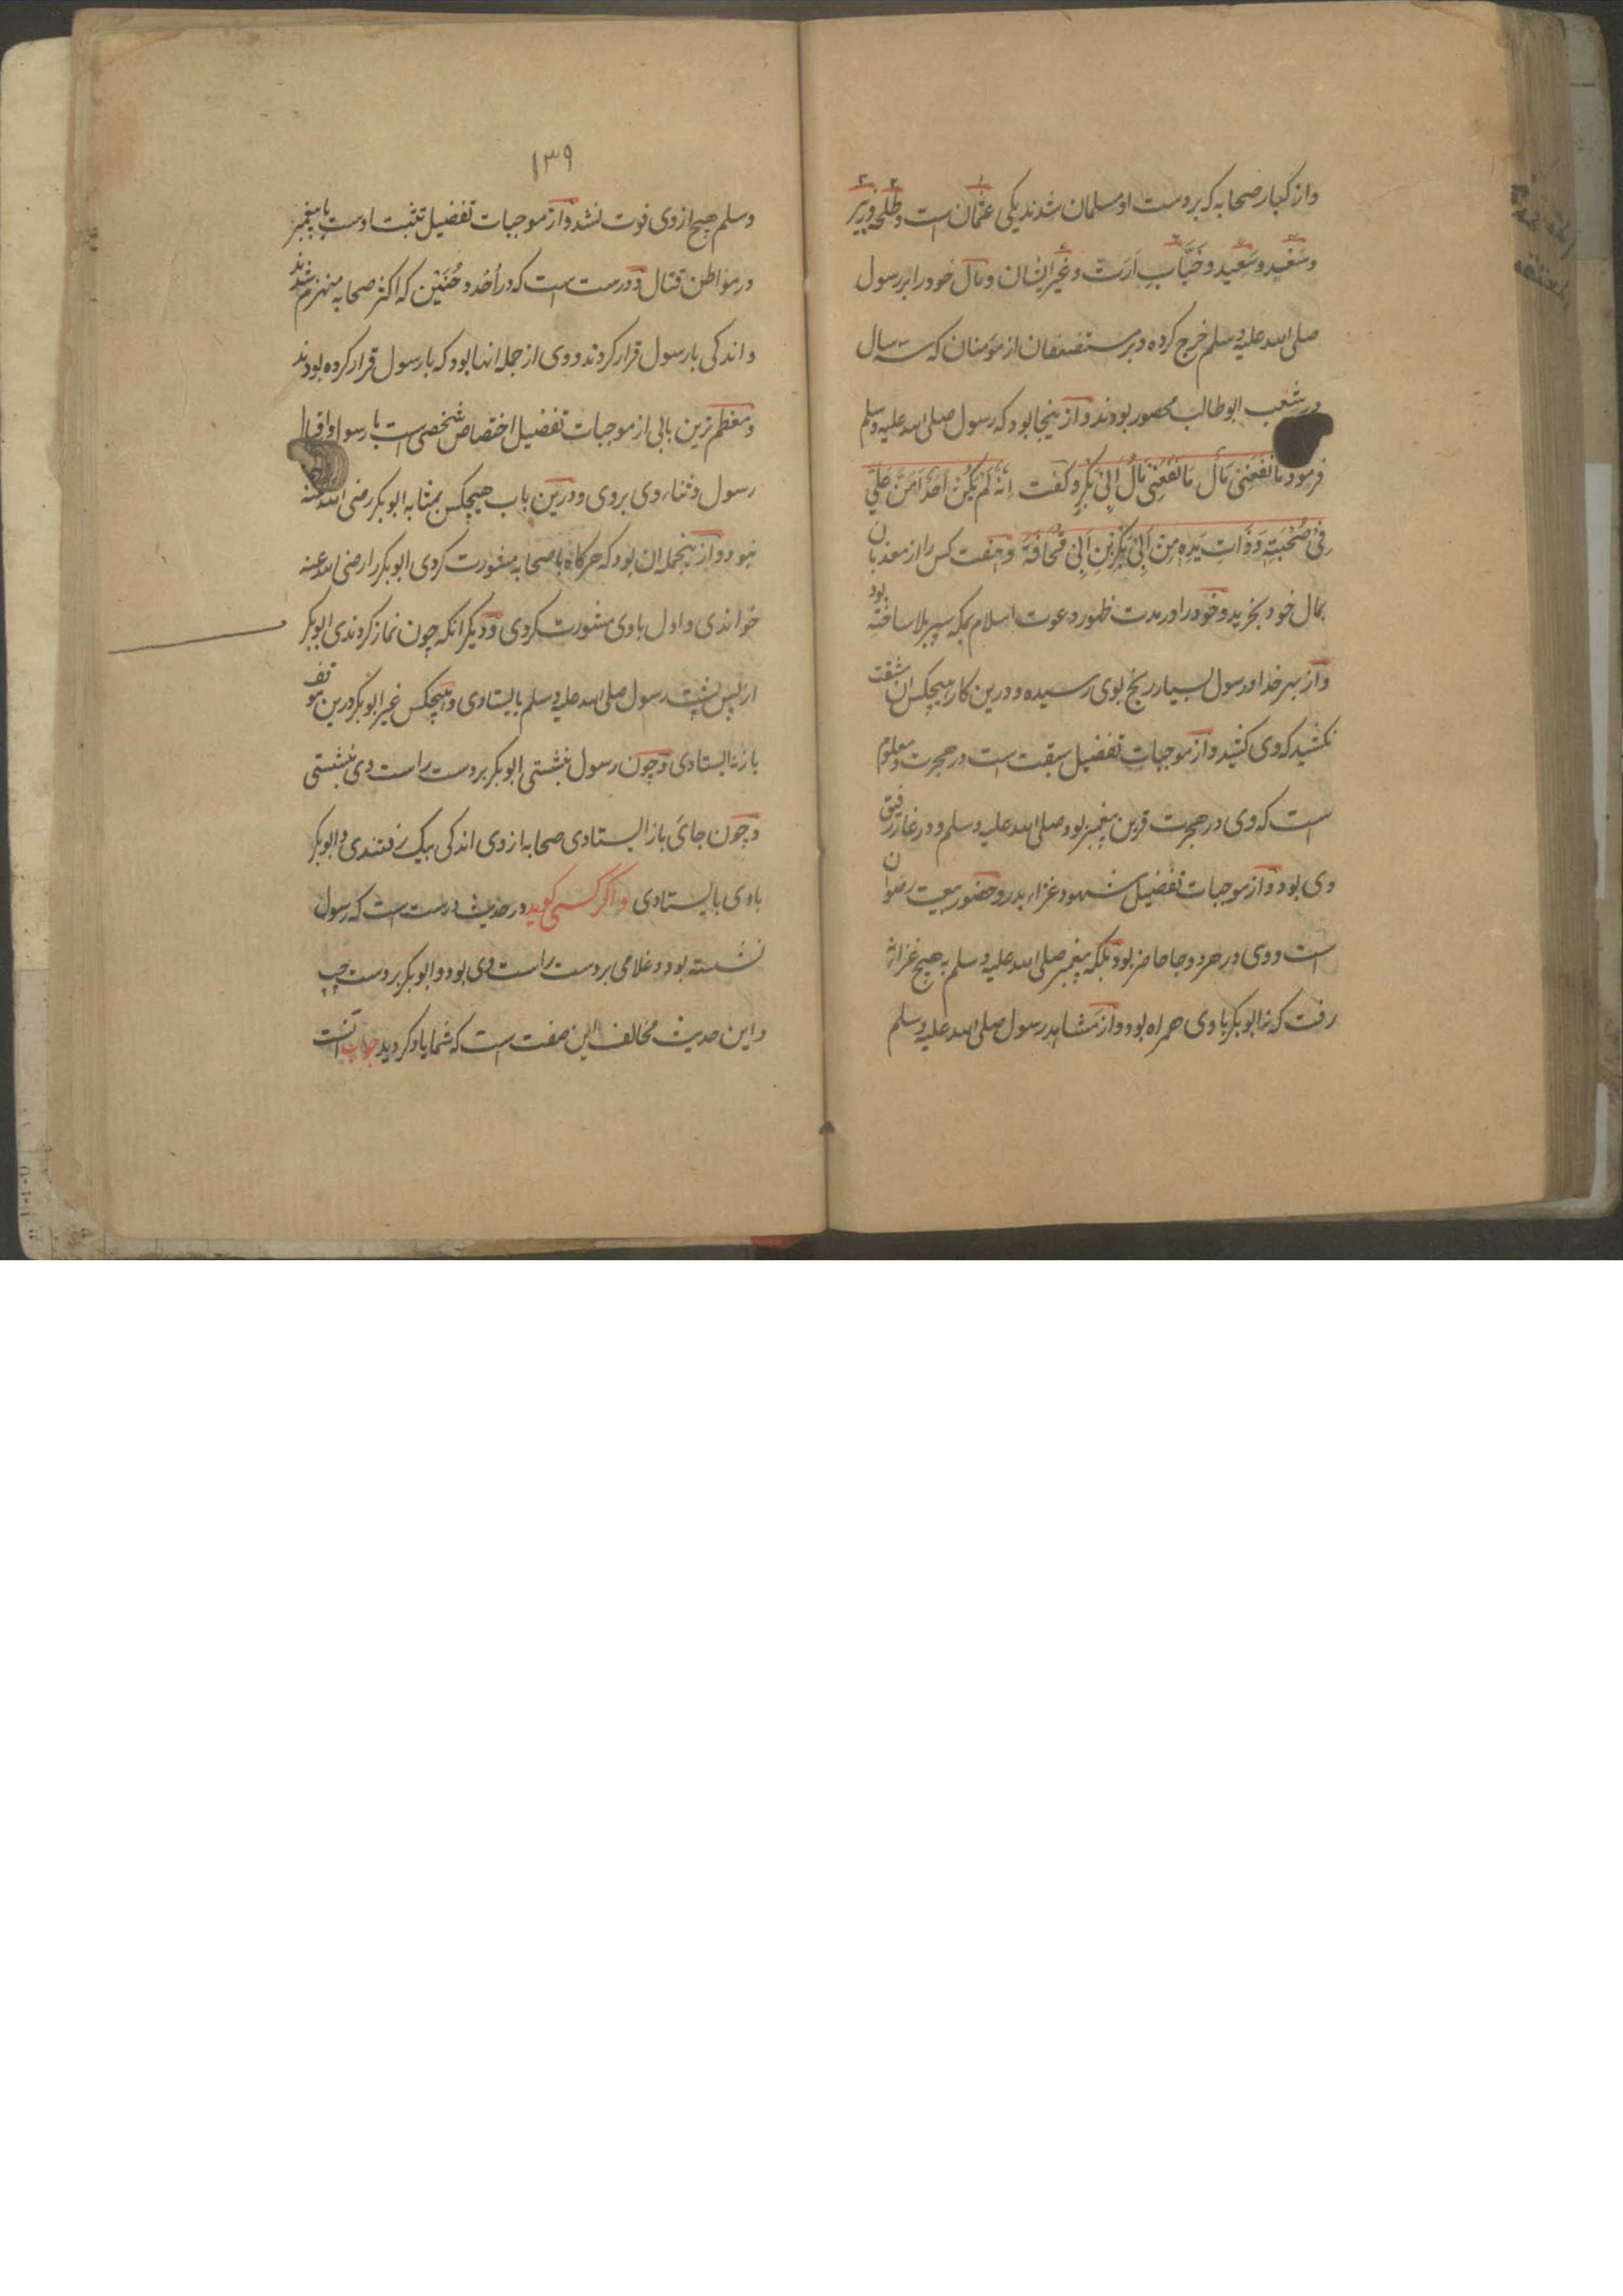 واز کبار صحابه که بر دست او مسلمان شدند یکی عثمان است و طلحه و زبیر
و سعید و سعید و خباب ارت و غیر ایشان و مال خود را بر رسول
صلی الله علیه وسلم خرج کرده و بر مستضعفان از مؤمنان که سه سال
در شعب ابوطالب محصور بودند و از ینجا بود که رسول صلی الله علیه وسلم
فرمود مَا نَفَعَنِی مَالٌ مَا نَفَعَنِی مَالُ اَبِی بَکْرٍ و کفت اِنَّهُ لَمْ یَکُنْ اَحَدٌ اَمَنَّ عَلَیَّ
فِی صُحْبَتِهِ وَذَاتِ یَدِهِ مِنْ اَبِی بَکْرِ بْنِ اَبِی قُحَافَةَ و هفت کس را از معذبان
بمال خود بخرید و خود را در مدت ظهور دعوت اسلام بمکه سپر بلا ساخته بود
و از بهر خدا و رسول بسیار رنج بوی رسیده و درین کار هیچکس ان مشقت
نکشید که وی کشید و از موجبات تفضیل سبقت است در هجرت و معلوم
است که وی در هجرت قرین پیغمبر بود صلی الله علیه وسلم و در غار رفیق
وی بود و از موجبات تفضیل شهود غزاء بدر و حضور بیعت رضوان
است و وی در هر دو جا حاضر بود بلکه پیغمبر صلی الله علیه وسلم به هیچ غزاة
رفت که نه ابوبکر با وی همراه بود و از مشاهد رسول صلی الله علیه وسلم
۱۳۹
وسلم هیچ از وی فوت نشد و از موجبات تفضیل تثبت اوست با پیغمبر
در مواطن قتال و درست است که در اُحُد و حُنَیْن که اکثر صحابه منهزم شدند
و اندکی با رسول قرار کردند و وی از جمله انها بود که با رسول قرار کرده بودند
و معظم ترین بابی از موجبات تفضیل اختصاص شخصی است با رسول و اقبال
رسول و ثناء وی بر وی و درین باب هیچکس بمثابه ابوبکر رضی الله عنه
نبود و از ینجمله ان بود که هرکاه با صحابه مشورت کردی ابوبکر را رضی الله عنه
خواندی و اول با وی مشورت کردی و دیگر انکه چون نماز کردندی ابوبکر
از پس پشت رسول صلی الله علیه وسلم بایستادی و هیچکس غیر ابوبکر درین موقف
باز نه ایستادی و چون رسول بنشستی ابوبکر بر دست راست وی بنشستی
و چون جائ باز ایستادی صحابه از وی اندکی یک رفتندی و ابوبکر
با وی بایستادی و اگر کسی کوید در حدیث درست است که رسول
نشسته بود و غلامی بر دست راست وی بود و ابوبکر بر دست چپ
و این حدیث مخالف این صفت است که شما یاد کردید جواب آنست